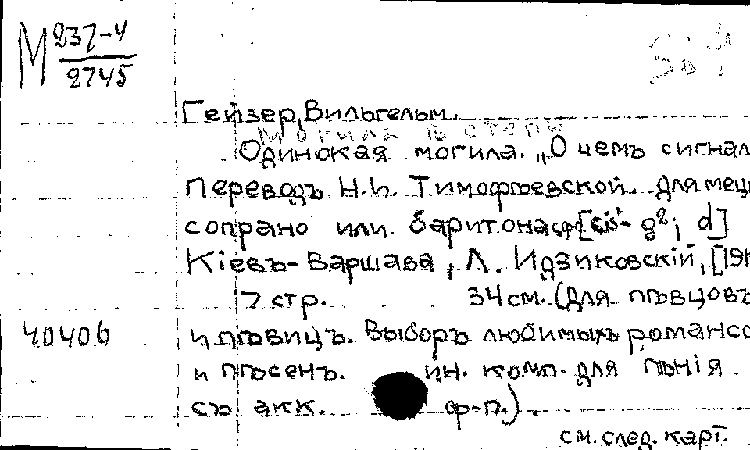 М 237-4
2745
Гейзер, Вильгельм.
Могила в степи
Одинокая могила. „О чемъ сигнал
Переводъ Н.И. Тимофѣевской. Для мец
сопрано или баритона [cis¹- g²; d]
Кіевъ-Варшава, Л. Идзиковскій, [191
7 стр. 34 см. (Для пѣвцовъ
40406 и пѣвицъ. Выборъ любимыхъ романсо
и пѣсенъ. ин. комп. для пѣнія
съ акк. ф-п.).
см. след. карт.